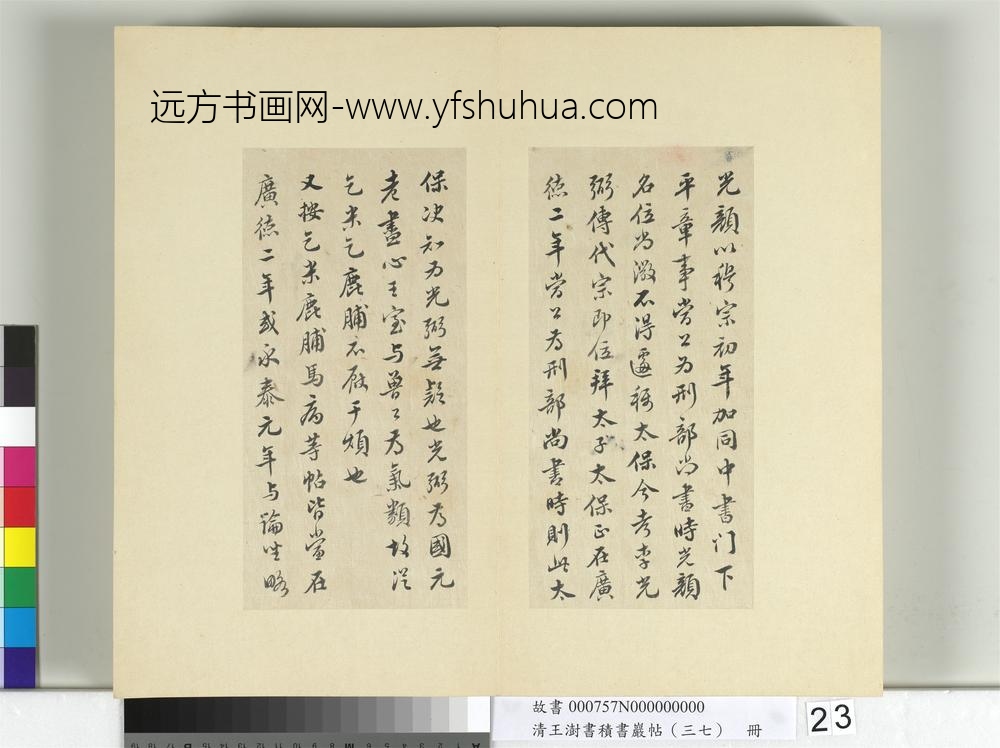 远方书画网-www.yfshuhua.com
光顏以穆宗初年加同中書门下
平章事當公为刑部尚書時光顏
名位尚微不得遽稱太保今考李光
弼傳代宗即位拜太子太保正在廣
德二年當公為刑部尚書時則此太
保决知为光弼無疑也光弼為國元
老盡心王室与魯公為氣類故從
乞米乞鹿脯不厭干煩也
又按乞米鹿脯馬病等帖皆當在
廣德二年或永泰元年与論坐略
故書 000757N000000000
清王澍書積書巖帖（三七） 冊
23